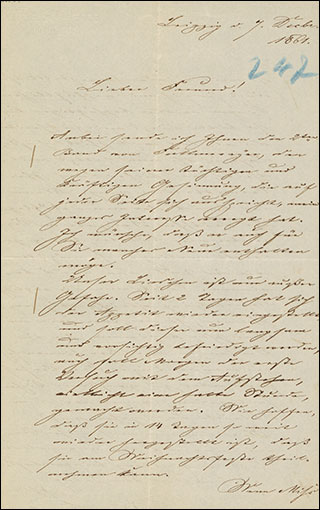 Leipzig d. 7. Decbr.
1861.
242
Lieber Freund!
Anbei sende ich Ihnen den 2ten
Band von, der
wegen seiner tüchtigen und
kräftigen Gesinnung, die auf
jeder Seite sich ausspricht, mein
ganzes Interesse erregt hat.
Ich wünsche, daß er auch für
Sie manches Neue enthalten
möge.
Unser Lieschen ist nun außer
Gefahr. Seit 2 Tagen hat sich
der Appetit wieder eingestellt
und soll dieser nun langsam
und vorsichtig befriedigt werden,
auch soll Morgen der erste
Versuch mit dem Aufstehen,
vielleicht eine halbe Stunde,
gemacht werden. Wir hoffen,
daß sie in 14 Tagen so weit
wieder hergestellt ist, daß
sie am Weihnachtsfeste theil-
nehmen kann.
Wenn